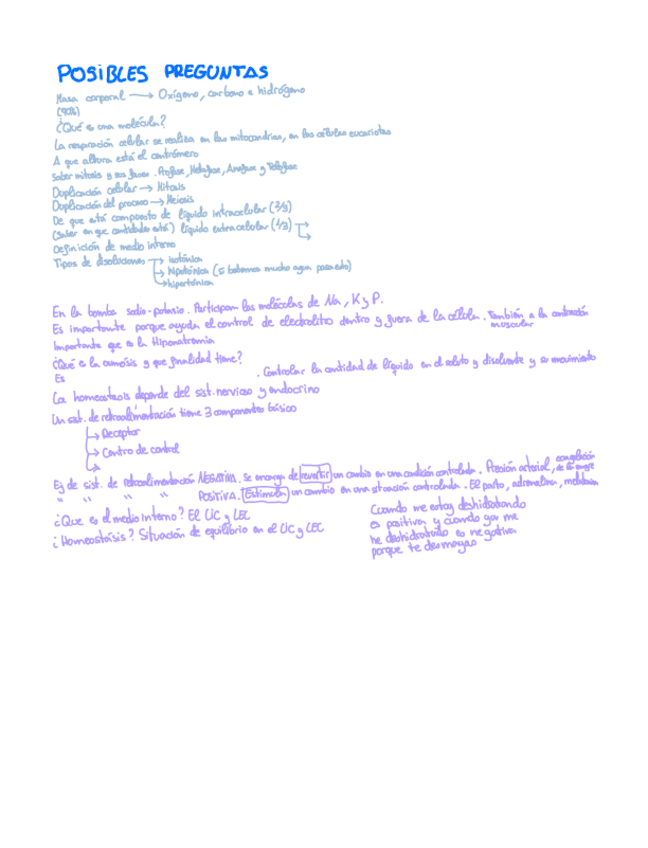 POSIBLES PREGUNTAS
Masa corporal → Oxígeno, carbono e hidrógeno
(90%)
¿Qué es una molécula?
La respiración celular se realiza en las mitocondrias, en las células eucariotas
A que altura está el centrómero
Saber mitosis y sus fases. Profase, Metafase, Anafase y Telofase
Duplicación celular → Mitosis
Duplicación del proceso → Meiosis
De que está compuesto de líquido intracelular (2/3)
(Saber en que cantidades está) líquido extracelular (1/3)
Definición de medio interno
Tipos de disoluciones → isotónica
→ hipotónica (si bebemos mucho agua pasa esto)
→ hipertónica
En la bomba sodio-potasio. Participan las moléculas de Na, K y P.
Es importante porque ayuda el control de electrolito dentro y fuera de la célula. También a la contracción
muscular
Importante que es la Hiponatremia
¿Qué es la osmosis y que finalidad tiene?
Es . Controlar la cantidad de líquido en el soluto y disolvente y su movimiento
La homeostasis depende del sist. nervioso y endocrino
Un sist. de retroalimentación tiene 3 componentes básicos
→ Receptor
→ Centro de control
→
Ej de sist. de retroalimentación NEGATIVA. Se encarga de revertir un cambio en una condición controlada. Presión arterial, coagulación
de la sangre
" " " " POSITIVA. Estimula un cambio en una situación controlada. El parto, adrenalina,
¿Que es el medio interno? El LIC y LEC
¿Homeostásis? Situación de equilibrio en el LIC y LEC
Cuando me estoy deshidratando
es positiva y cuando ya me
he deshidratado es negativa
porque te desmayas